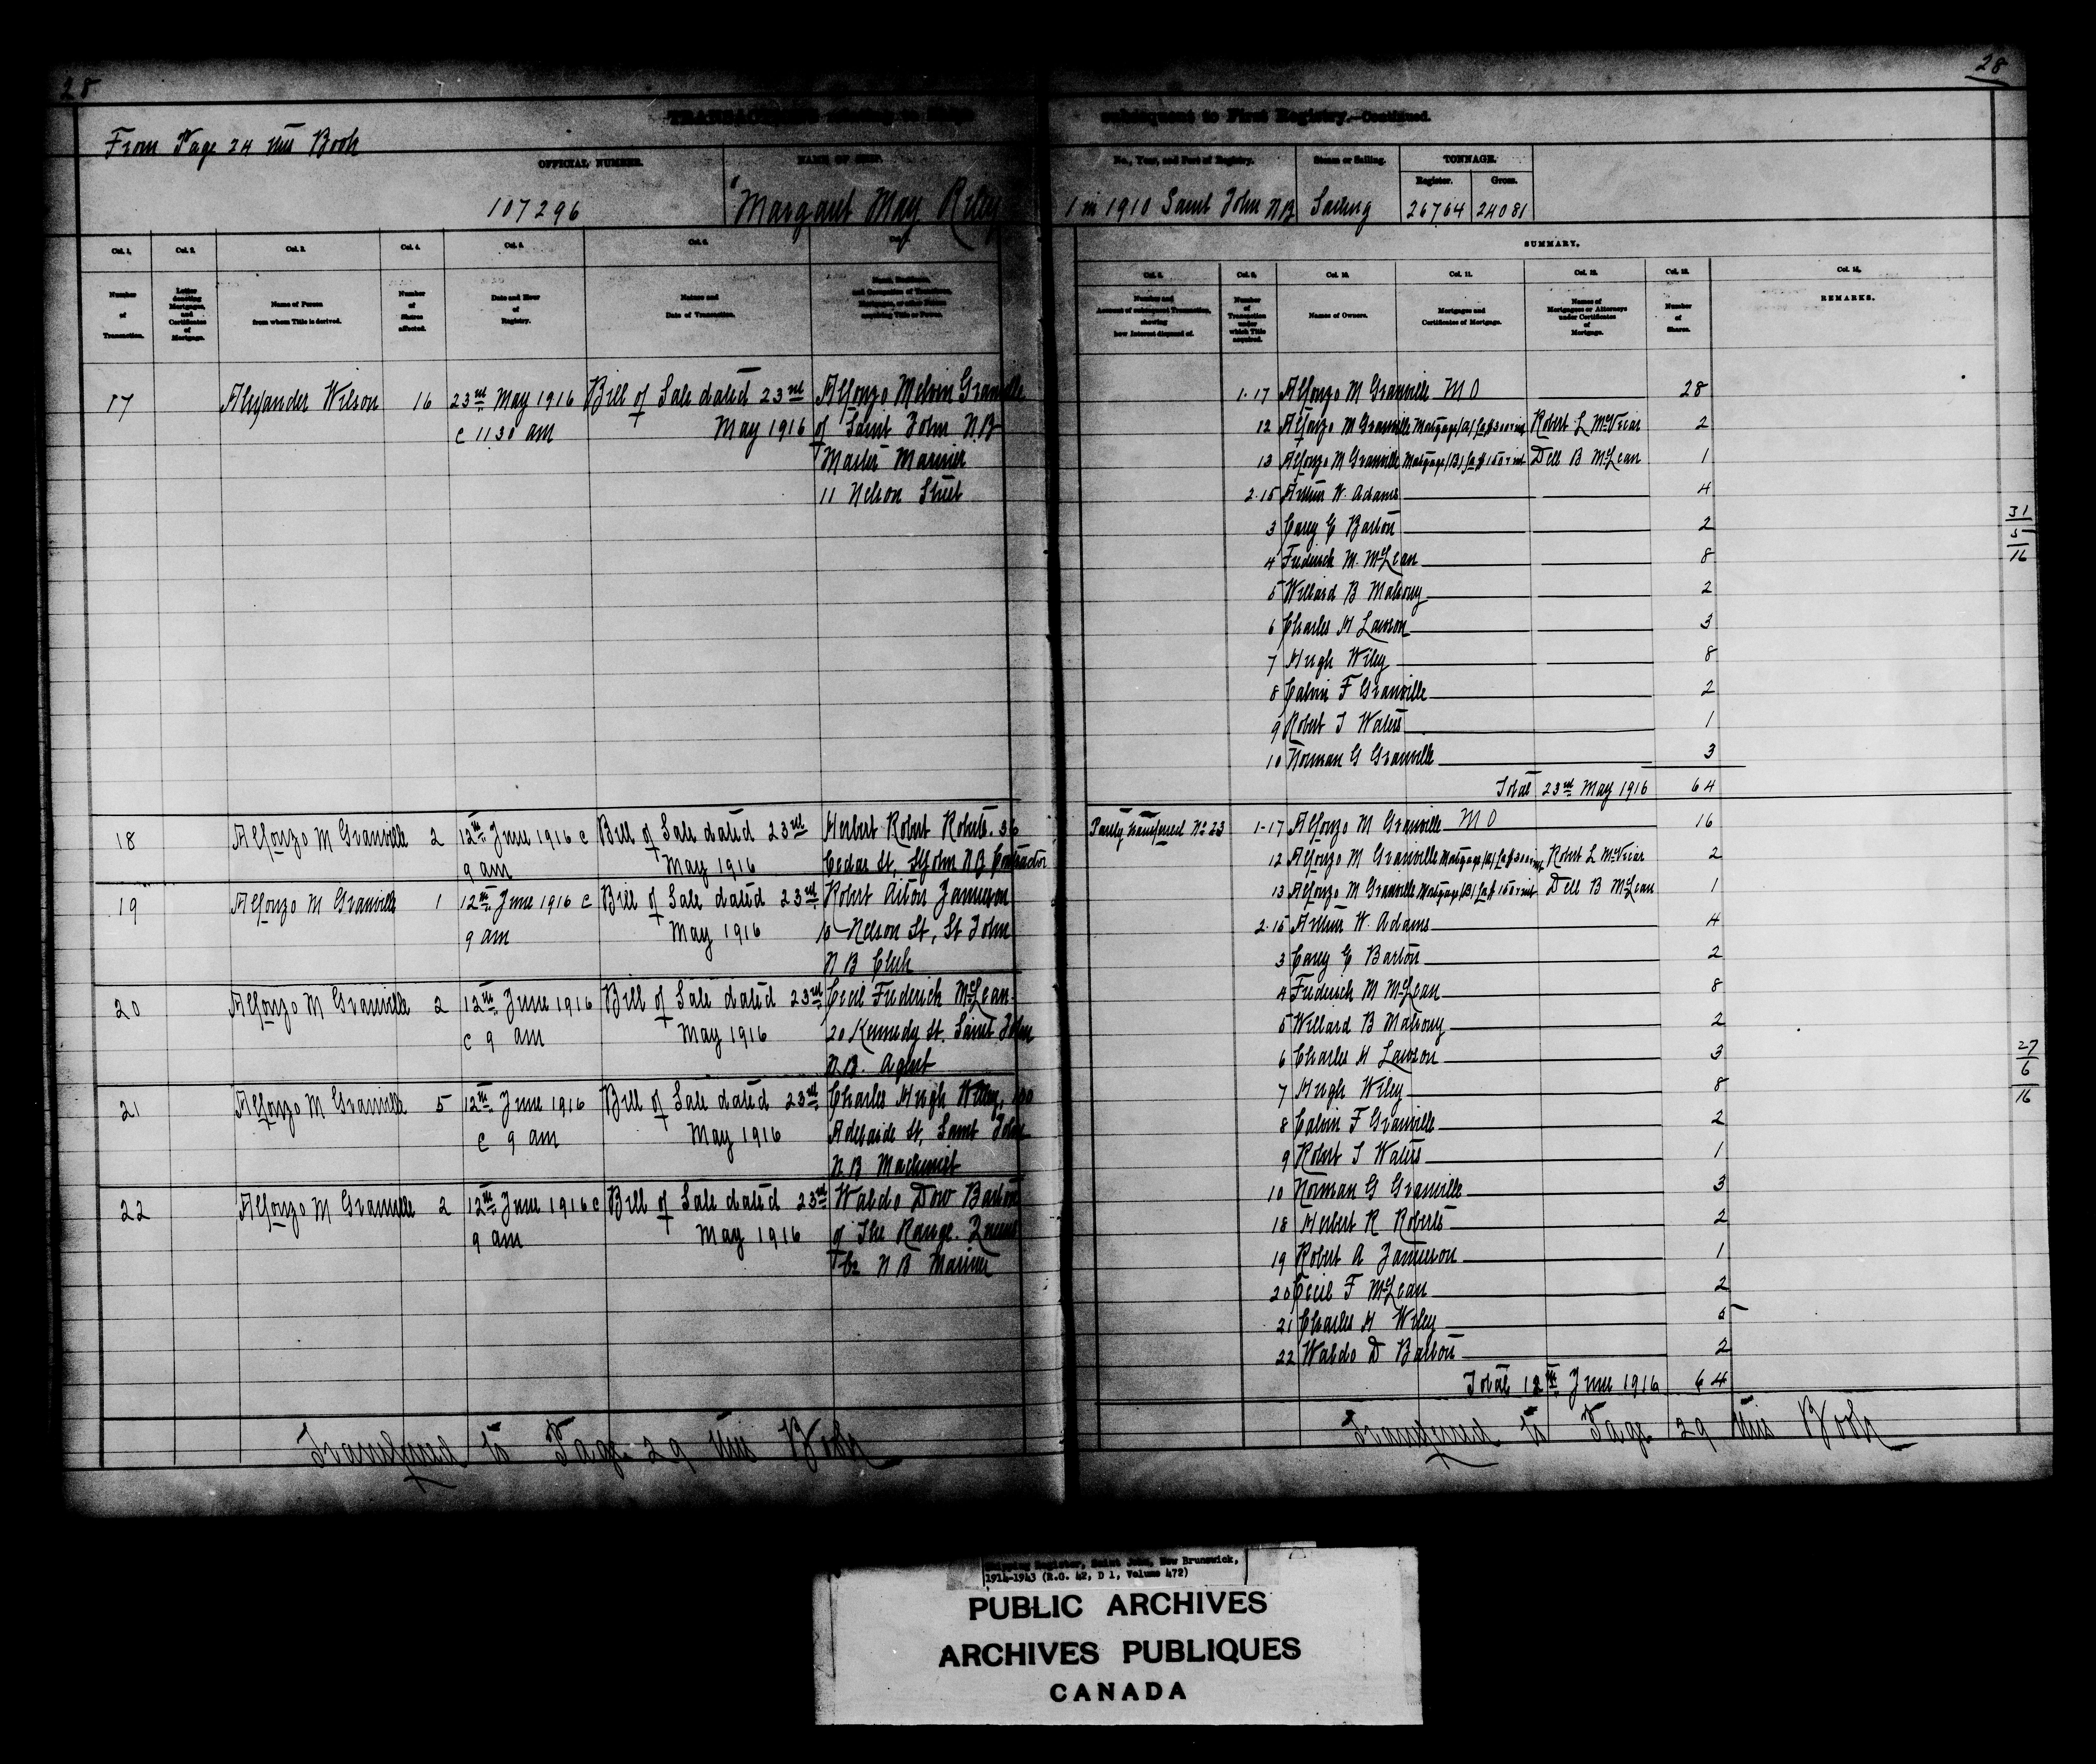 28
28
TRANSACTIONS
subsequent to First Registry.—Continued.
From Page 24 this Book
OFFICIAL NUMBER.
NAME OF SHIP.
No., Year, and Port of Registry.
Steam or Sailing.
TONNAGE.
Register.
Gross.
107296
"Margaret May Riley
1 in 1910 Saint John NB
Sailing
26764
24081
SUMMARY.
Col. 1.
Col. 2.
Col. 3.
Col. 4.
Col. 5.
Col. 6.
Col. 8.
Col. 9.
Col. 10.
Col. 11.
Col. 12.
Col. 13.
Col. 14.
Number of Transaction.
Letter denoting Mortgages, and Certificates of Mortgage.
Name of Person from whom Title is derived.
Number of Shares affected.
Date and Hour of Registry.
Nature and Date of Transaction.
Number and Amount of subsequent Transaction, showing how Interest disposed of.
Number of Transaction under which Title acquired.
Names of Owners.
Mortgages and Certificates of Mortgage.
Names of Mortgagees or Attorneys under Certificates of Mortgage.
Number of Shares.
REMARKS.
17 Alexander Wilson 16 23rd May 1916 Bill of Sale dated 23rd Alfonzo Melvin Granville
@ 11 30 am May 1916 of Saint John N.B
Master Mariner
11 Nelson Street
1.17 Alfonzo M Granville MO 28
12 Alfonzo M Granville Mortgage (A) for $300 & int Robert L McVicar 2
13 Alfonzo M Granville Mortgage (B) for $150 & int Dell B McLean 1
2.15 Arthur W. Adams 4
3 Carey E Barton 2
4 Frederick M. McLean 8
5 Willard B Mahony 2
6 Charles H Lawson 3
7 Hugh Wiley 8
8 Calvin F Granville 2
9 Robert J Waters 1
10 Norman G Granville 3
Total 23rd May 1916 64
31
5
16
18 Alfonzo M Granville 2 12th June 1916 @ Bill of Sale dated 23rd Herbert Robert Roberts. 36
9 am May 1916 Cedar St, St John N.B Contractor
19 Alfonzo M Granville 1 12th June 1916 @ Bill of Sale dated 23rd Robert Aiton Jamieson
9 am May 1916 Nelson St, St John
N B Clerk
20 Alfonzo M Granville 2 12th June 1916 Bill of Sale dated 23rd Cecil Frederick McLean
@ 9 am May 1916 20 Kennedy St. Saint John
N.B. Agent
21 Alfonzo M Granville 5 12th June 1916 Bill of Sale dated 23rd Charles Hugh Wiley, 100
@ 9 am May 1916 Adelaide St, Saint John
N.B Machinist
22 Alfonzo M Granville 2 12th June 1916 @ Bill of Sale dated 23rd Waldo Dow Barton
9 am May 1916 of The Range. Queens
Co N B Mariner
Partly transferred No 23 1-17 Alfonzo M Granville MO 16
12 Alfonzo M Granville Mortgage (A) for $300 & int Robert L McVicar 2
13 Alfonzo M Granville Mortgage (B) for $150 & int Dell B McLean 1
2.15 Arthur W. Adams 4
3 Carey E Barton 2
4 Frederick M McLean 8
5 Willard B Mahony 2
6 Charles H Lawson 3
7 Hugh Wiley 8
8 Calvin F Granville 2
9 Robert J Waters 1
10 Norman G Granville 3
18 Herbert R Roberts 2
19 Robert A Jamieson 1
20 Cecil F McLean 2
21 Charles H Wiley 5
22 Waldo D Barton 2
Total 12th June 1916 64
27
6
16
Transferred to Page 29 this Book
Transferred to Page 29 this Book
Shipping Register, Saint John, New Brunswick,
1914-1943 (R.G. 42, D 1, Volume 472)
PUBLIC ARCHIVES
ARCHIVES PUBLIQUES
CANADA